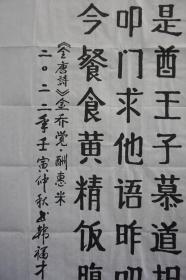 是酋王子慕道
叩门求他语昨叨
今餐食黄精饭腹
《全唐诗》金乔觉·酬惠米
二〇二二年壬寅仲秋书韩福才